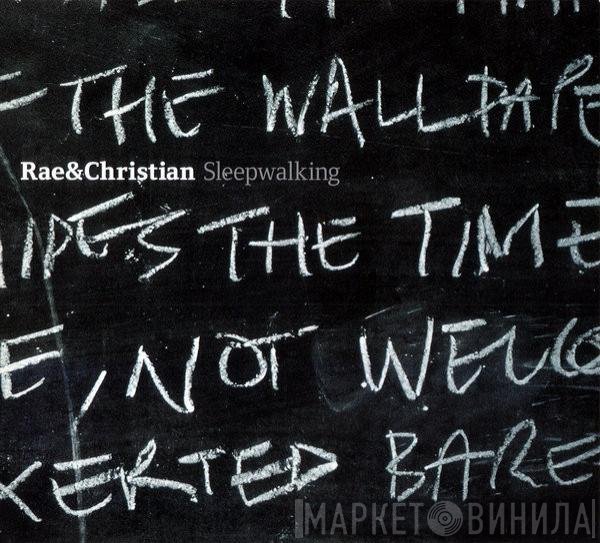 THE WALLPAPE
Rae&Christian Sleepwalking
IPES THE TIME
E, NOT WELCO
XERTED BARE
МАРКЕТ ВИНИЛА